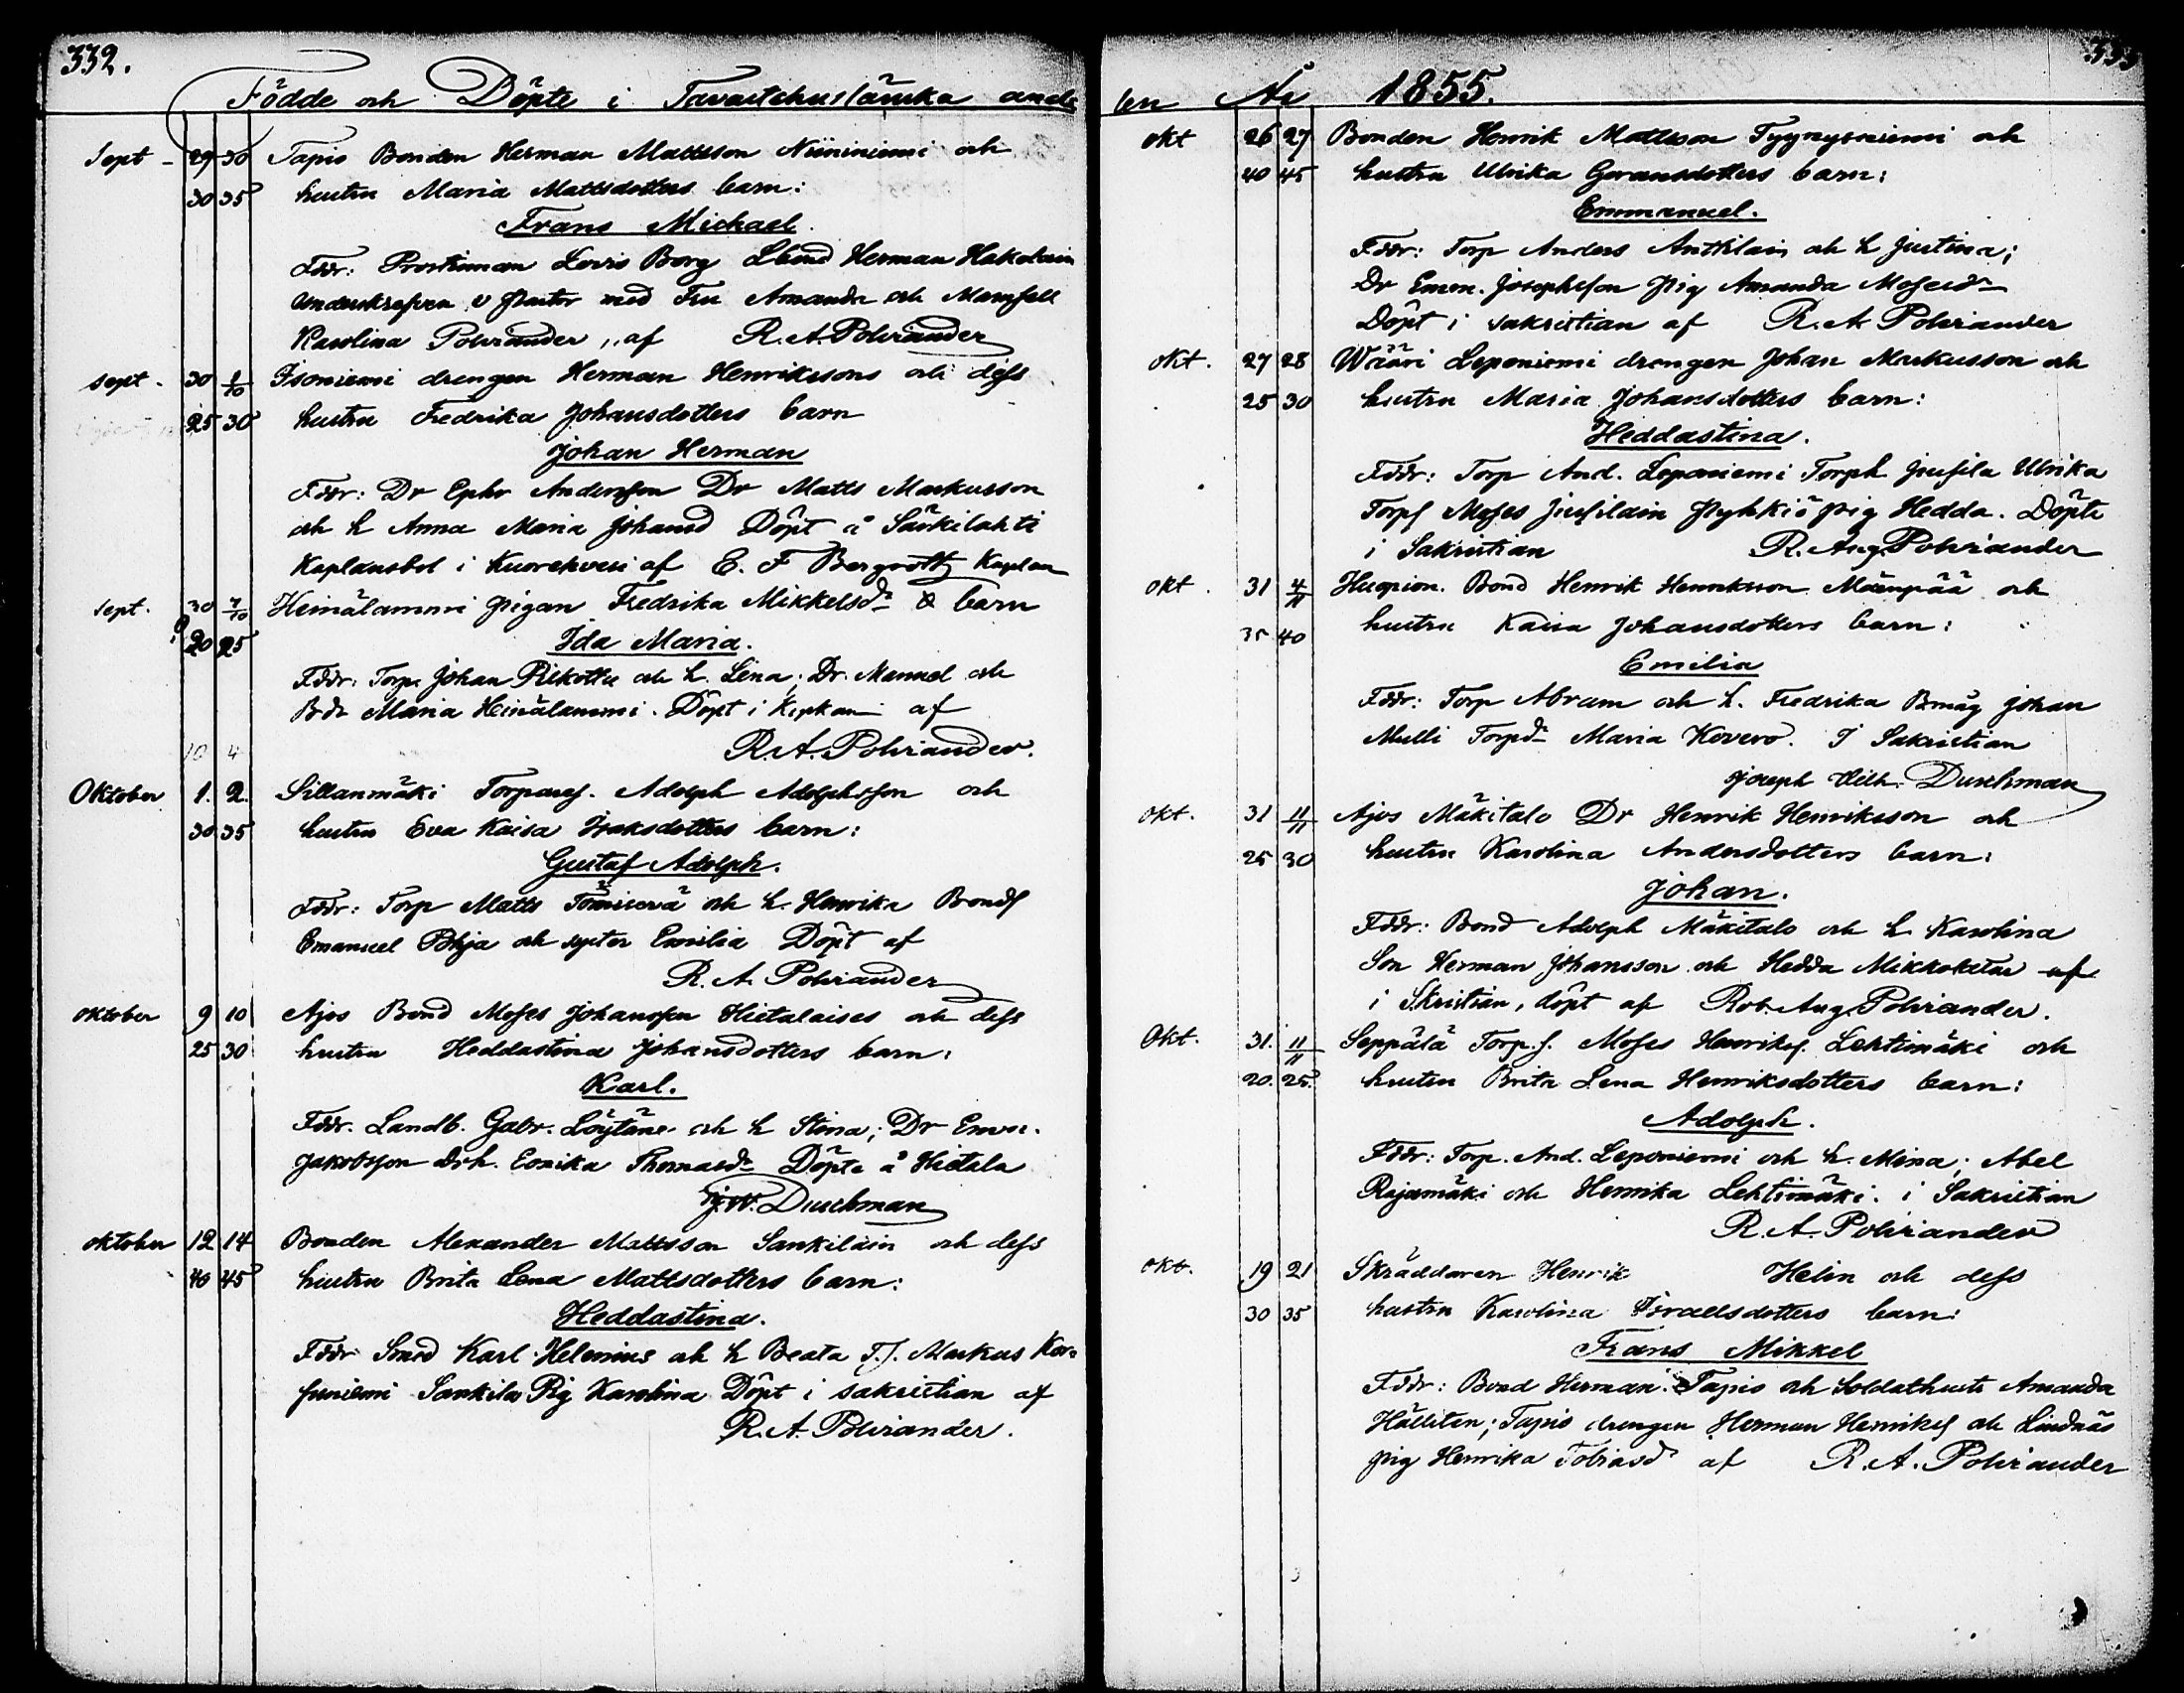 332.
Födde och Döpte i Tavastehusländska ande
Sept - 29 30 Tapio Bonden Herman Mattsson Niininiemi och
30 35 hustru Maria Mattsdotters barn:
Frans Michael.
Fddr: Prostinnan Lovis Borg Lbond Herman Hakolain
Underskrefven v Pastor med Fru Amanda och Mamsell
Karolina Polviander, af R. A. Polviander
sept. 30 1/10 Isoniemi drengen Herman Henrikssons och dess
25 30 hustru Fredrika Johansdotters barn
Johan Herman
Fddr: Dr Ephr Andersson Dr Matts Markusson
och h Anna Maria Johansd Döpt å Särkilahti
Kaplansbol i Kuorehvesi af E. F Bergroth Kaplan
sept. 30 7/10 Heinälammi pigan Fredrika Mikkelsdr barn
20 25 Ida Maria.
Fddr: Torp. Johan och h. Lina; Dr. Manuel och
Bdr Maria Heinälammi. Döpt i af
R. A. Polviander.
10 4
Oktober 1. 2. Sillanmäki Torpares. Adolph Adolphsson och
30 35 hustru Eva Kaisa Isaksdotters barn:
Gustaf Adolph.
Fddr: Torp Matts och h. Henrika Bonds
Emanuel Pohja och syster Emilia Döpt af
R. A. Polviander
oktober 9 10 Ajos Bond Moses Johansson Hietalaises och dess
25 30 hustru Heddastina Johansdotters barn:
Karl.
Fddr. Landb. Gabr. Löytäne och h Stina; Dr Eman.
Jakobsson Drh. Eorika Thomasdr Döpte å Hietala
J. W. Duschman
oktober 12 14 Bonden Alexander Mattsson Sankilain och dess
40 45 hustru Brita Lena Mattsdotters barn:
Heddastina.
Fddr Smed Karl Helenius och h Beata T.f. Markus Kor-
Sankila Pig Karolina Döpt i sakristian af
R. A. Polviander.
333
len År 1855.
okt 26 27 Bonden Henrik Mattsson Tyynysniemi och
40 45 hustru Ulrika Göransdotters barn:
Emmanuel.
Fddr: Torp Anders Anttilain och h Justina;
Dr Eman. Josephsson pig Amanda Mosesdr
Döpt i sakristian af R. A. Polviander
okt. 27 28 Wääri Leponiemi drengen Johan Markusson och
25 30 hustru Maria Johansdotters barn:
Heddastina.
Fddr: Torp And. Leponiemi Torph Jussila Ulrika
Torps Moses Jussilain pig Hedda. Döpte
i Sakristian R. Aug. Polviander
okt. 31 4/11 Huopion. Bond Henrik Henriksson Mäenpää och
35 40 hustru Kaisa Johansdotters barn:
Emilia
Fddr: Torp Abram och h. Fredrika Bmåg Johan
Mulli Torpdr Maria Kovero. I Sakristian
Joseph Vilh. Duschman
okt. 31 11/11 Ajos Mäkitalo Dr Henrik Henriksson och
25 30 hustru Karolina Andersdotters barn:
Johan.
Fddr: Bond Adolph Mäkitalo och h Karolina
Son Herman Johansson och Hedda af
i Skristian, döpt af Rob. Aug. Polviander.
Okt. 31. 11/11 Seppälä Torp.s. Moses Henrikss. Lehtimäki och
20. 25. hustru Brita Lena Henriksdotters barn:
Adolph.
Fddr: Torp. And. Leponiemi och h. Mina; Abel
Rajamäki och Henrika Lehtimäki. i Sakristian
R. A. Polviander
okt. 19 21 Skräddaren Henrik Helin och dess
30 35 hustru Karolina Israelsdotters barn:
Frans Mikkel
Fddr: Bond Herman Tapio och Soldathust Amanda
Hälliten; Tapio drengen Herman Henrikss och Lindnäs
pig Henrika Tobiasdr af R. A. Polviander